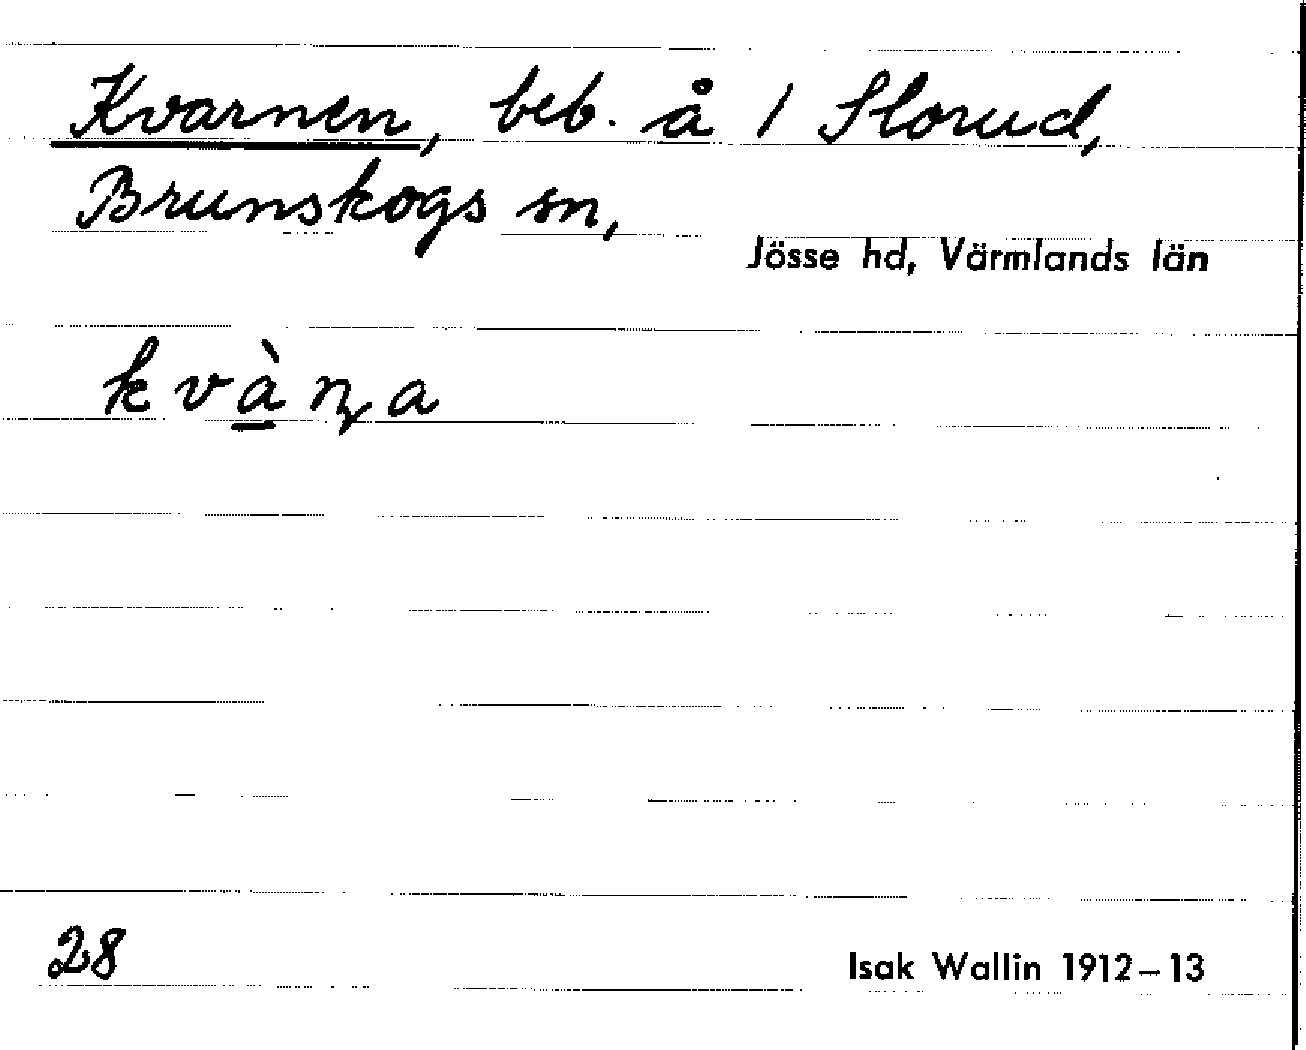 Kvarnen, beb. å 1 Slorud,
Brunskogs sn,
Jösse hd, Värmlands län
kvà̱ɳa
28
Isak Wallin 1912–13